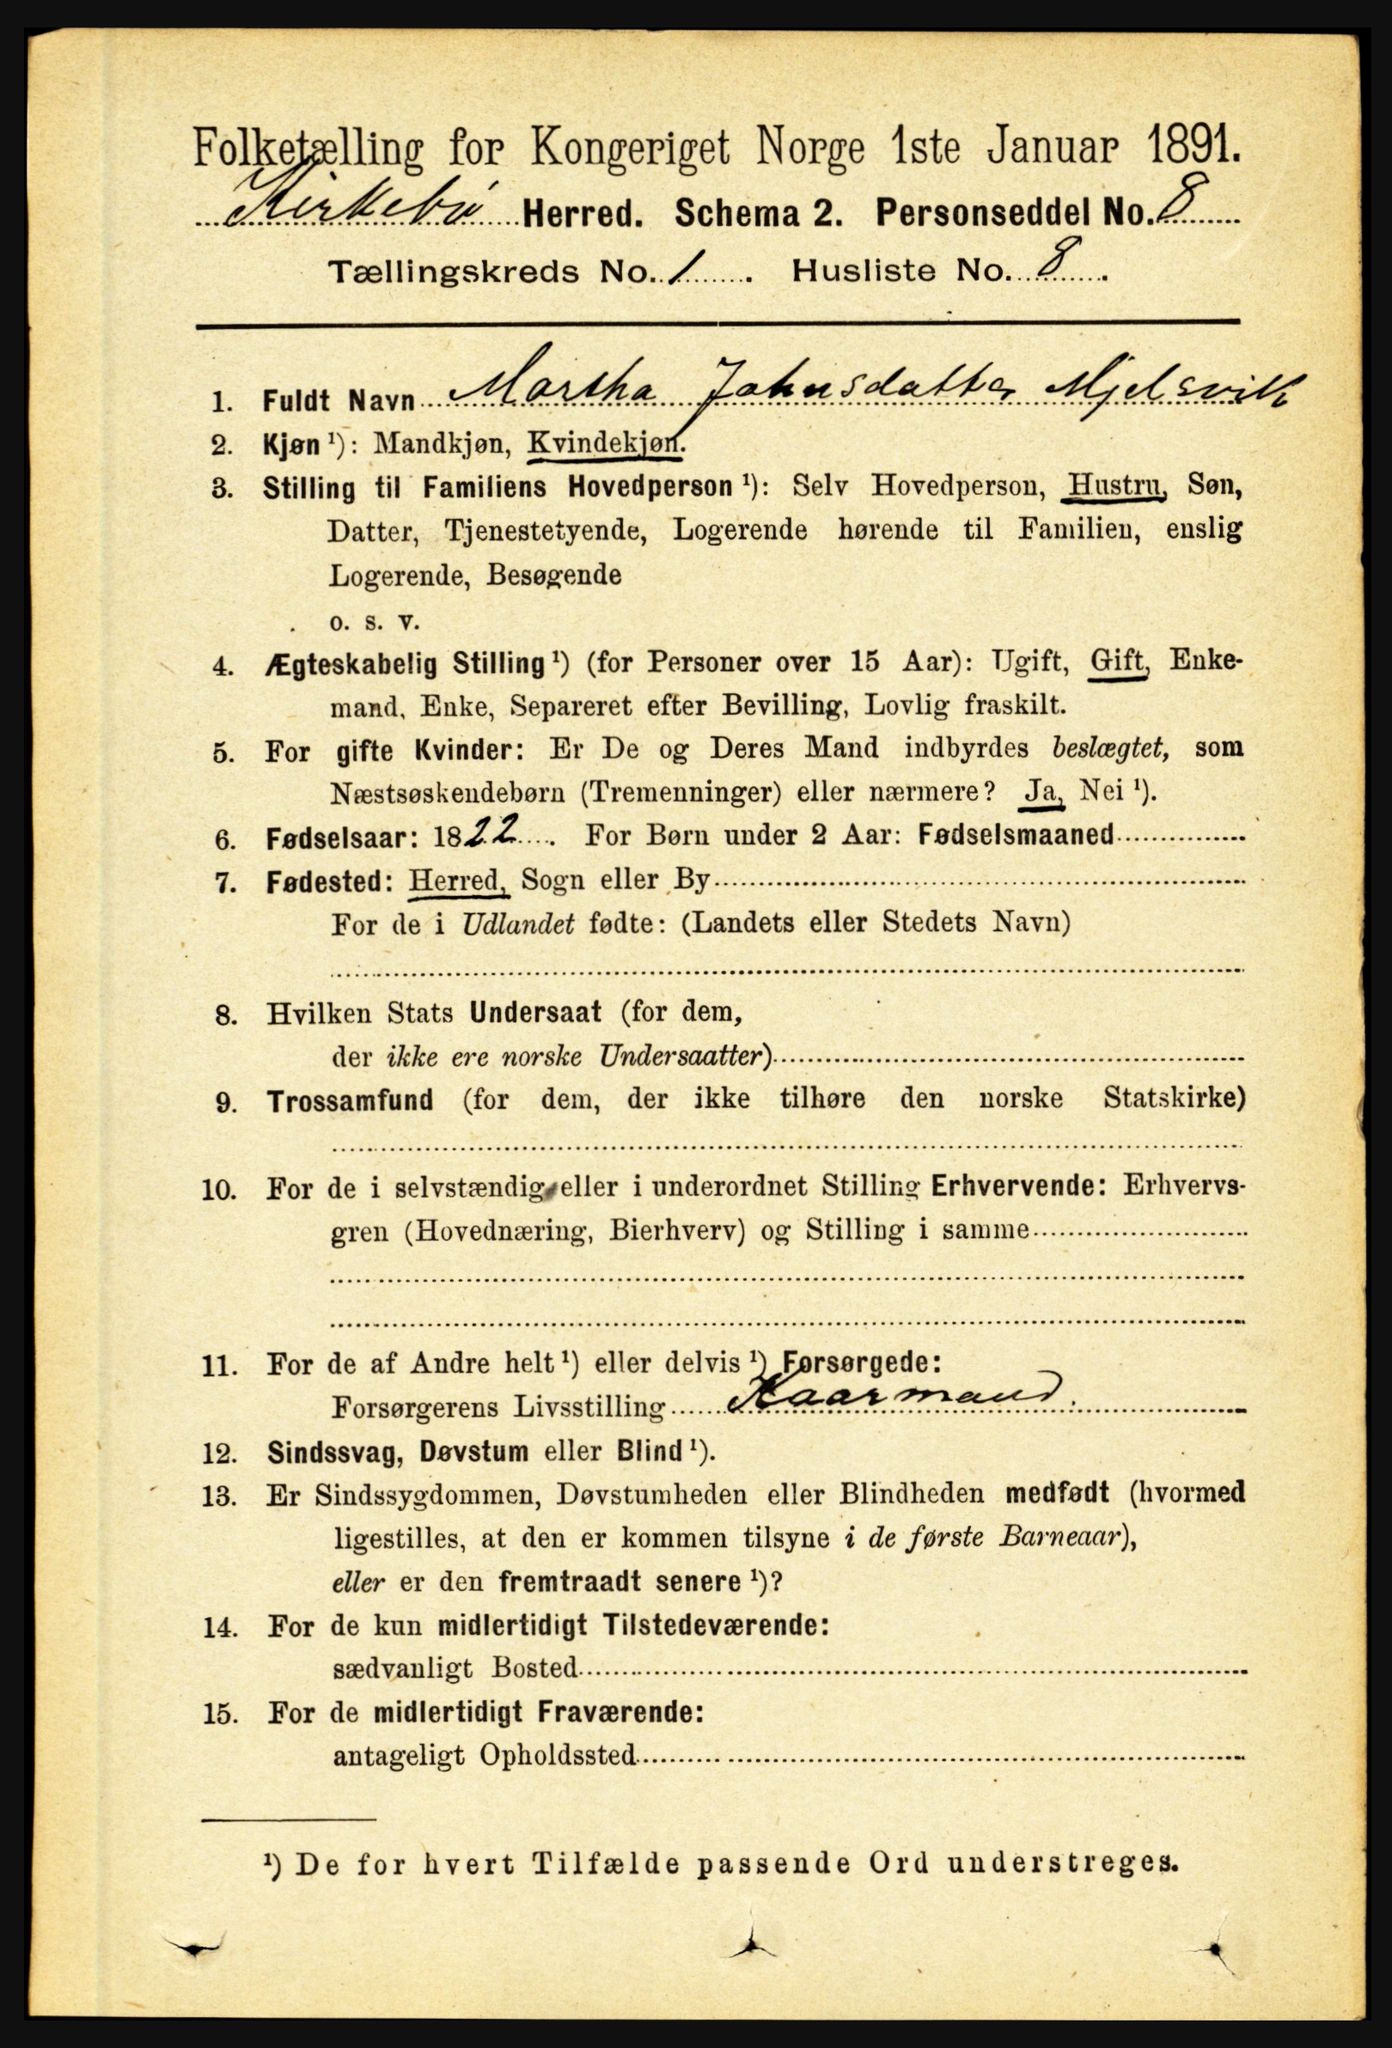 Folketælling for Kongeriget Norge 1ste Januar 1891.
Kirkebø Herred. Schema 2. Personseddel No. 8
Tællingskreds No. 1. Husliste No. 8.
1. Fuldt Navn Martha Johnsdatter Mjelsvik
2. Kjøn ¹): Mandkjøn, Kvindekjøn.
3. Stilling til Familiens Hovedperson ¹): Selv Hovedperson, Hustru, Søn,
Datter, Tjenestetyende, Logerende hørende til Familien, enslig
Logerende, Besøgende
o. s. v.
4. Ægteskabelig Stilling ¹) (for Personer over 15 Aar): Ugift, Gift, Enke-
mand, Enke, Separeret efter Bevilling, Lovlig fraskilt.
5. For gifte Kvinder: Er De og Deres Mand indbyrdes beslægtet, som
Næstsøskendebørn (Tremenninger) eller nærmere? Ja, Nei ¹).
6. Fødselsaar: 1822. For Børn under 2 Aar: Fødselsmaaned
7. Fødested: Herred, Sogn eller By
For de i Udlandet fødte: (Landets eller Stedets Navn)
8. Hvilken Stats Undersaat (for dem,
der ikke ere norske Undersaatter)
9. Trossamfund (for dem, der ikke tilhøre den norske Statskirke)
10. For de i selvstændig eller i underordnet Stilling Erhvervende: Erhvervs-
gren (Hovednæring, Bierhverv) og Stilling i samme
11. For de af Andre helt ¹) eller delvis ¹) Forsørgede:
Forsørgerens Livsstilling Kaarmand.
12. Sindssvag, Døvstum eller Blind ¹).
13. Er Sindssygdommen, Døvstumheden eller Blindheden medfødt (hvormed
ligestilles, at den er kommen tilsyne i de første Barneaar),
eller er den fremtraadt senere ¹)?
14. For de kun midlertidigt Tilstedeværende:
sædvanligt Bosted
15. For de midlertidigt Fraværende:
antageligt Opholdssted
¹) De for hvert Tilfælde passende Ord understreges.